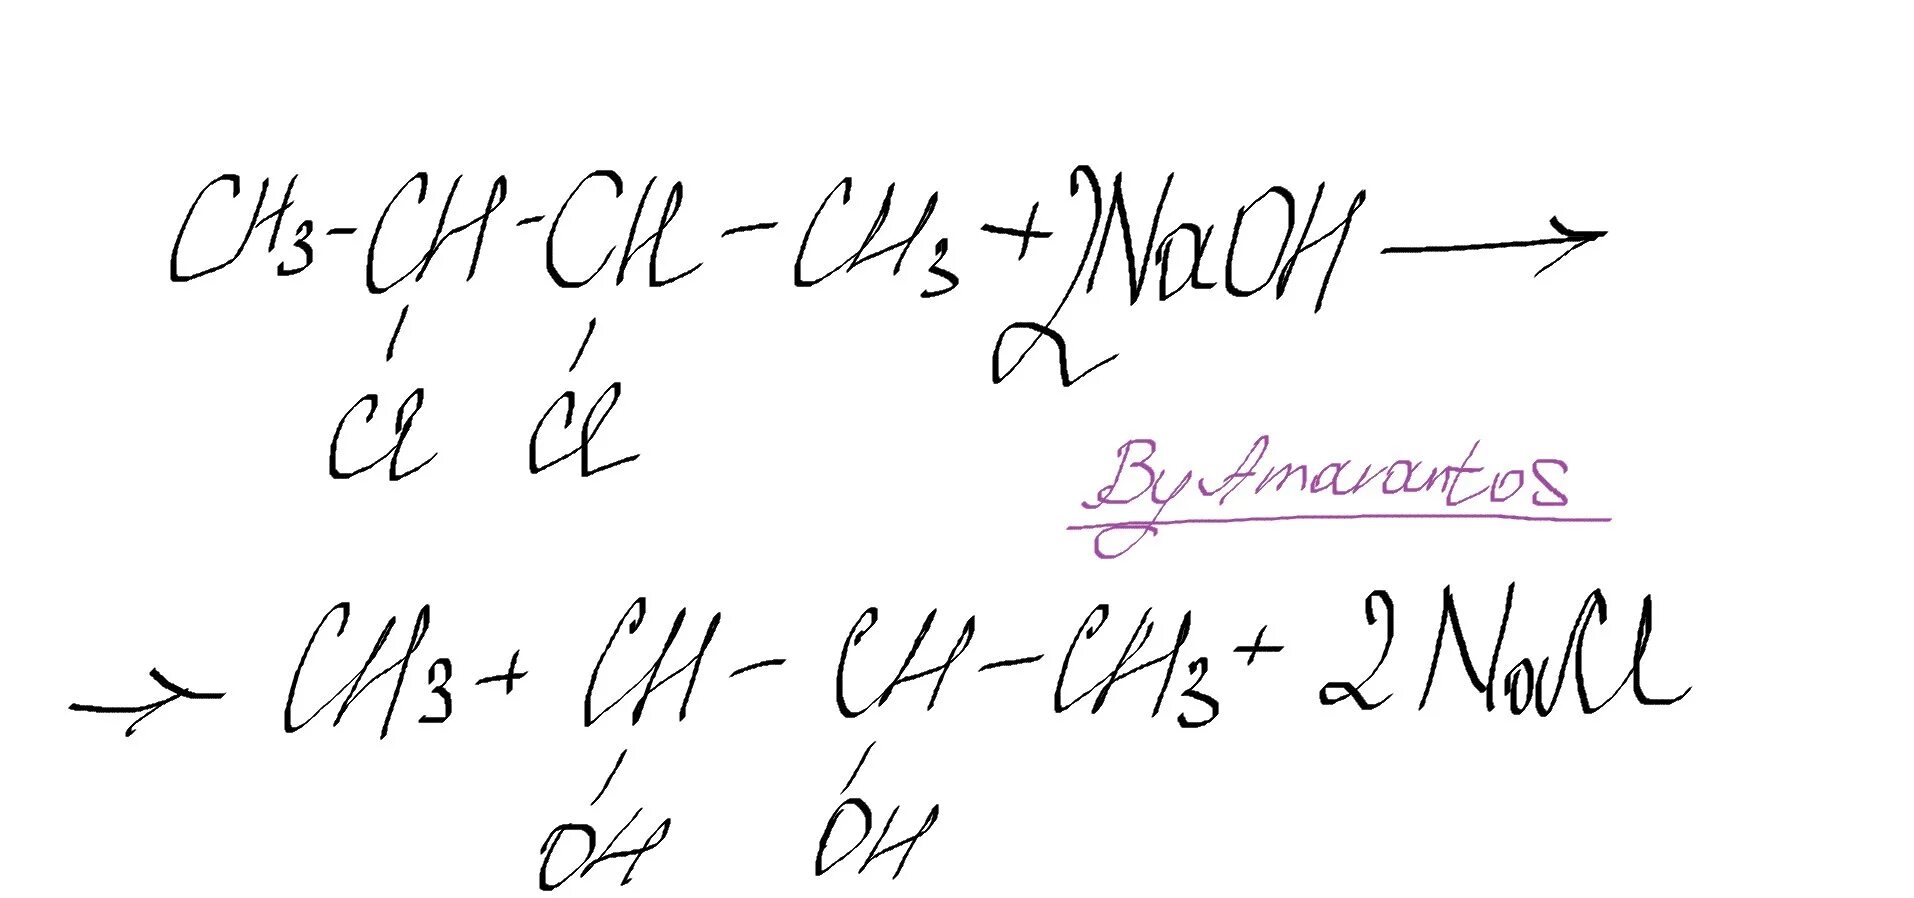 CH3-CH-CH-CH3+2NaOH→
Cl Cl
By Amarantos
→CH3+CH-CH-CH3+2NaCl
OH OH